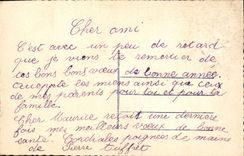 Cher ami
C'est avec un peu de retard
que je viens te remercier de
tes bons bons vœux de bonne année.
accepte les miens ainsi que ceux
de mes parents pour toi et pour ta
famille.
Cher Maurice reçoit une dernière
fois mes meilleurs vœux de bonne
santé. Cordiales poignées de mains
de Pierre